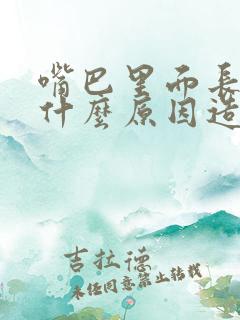 嘴巴里而長
什麼原因造
吉拉德
未任同意禁止转载